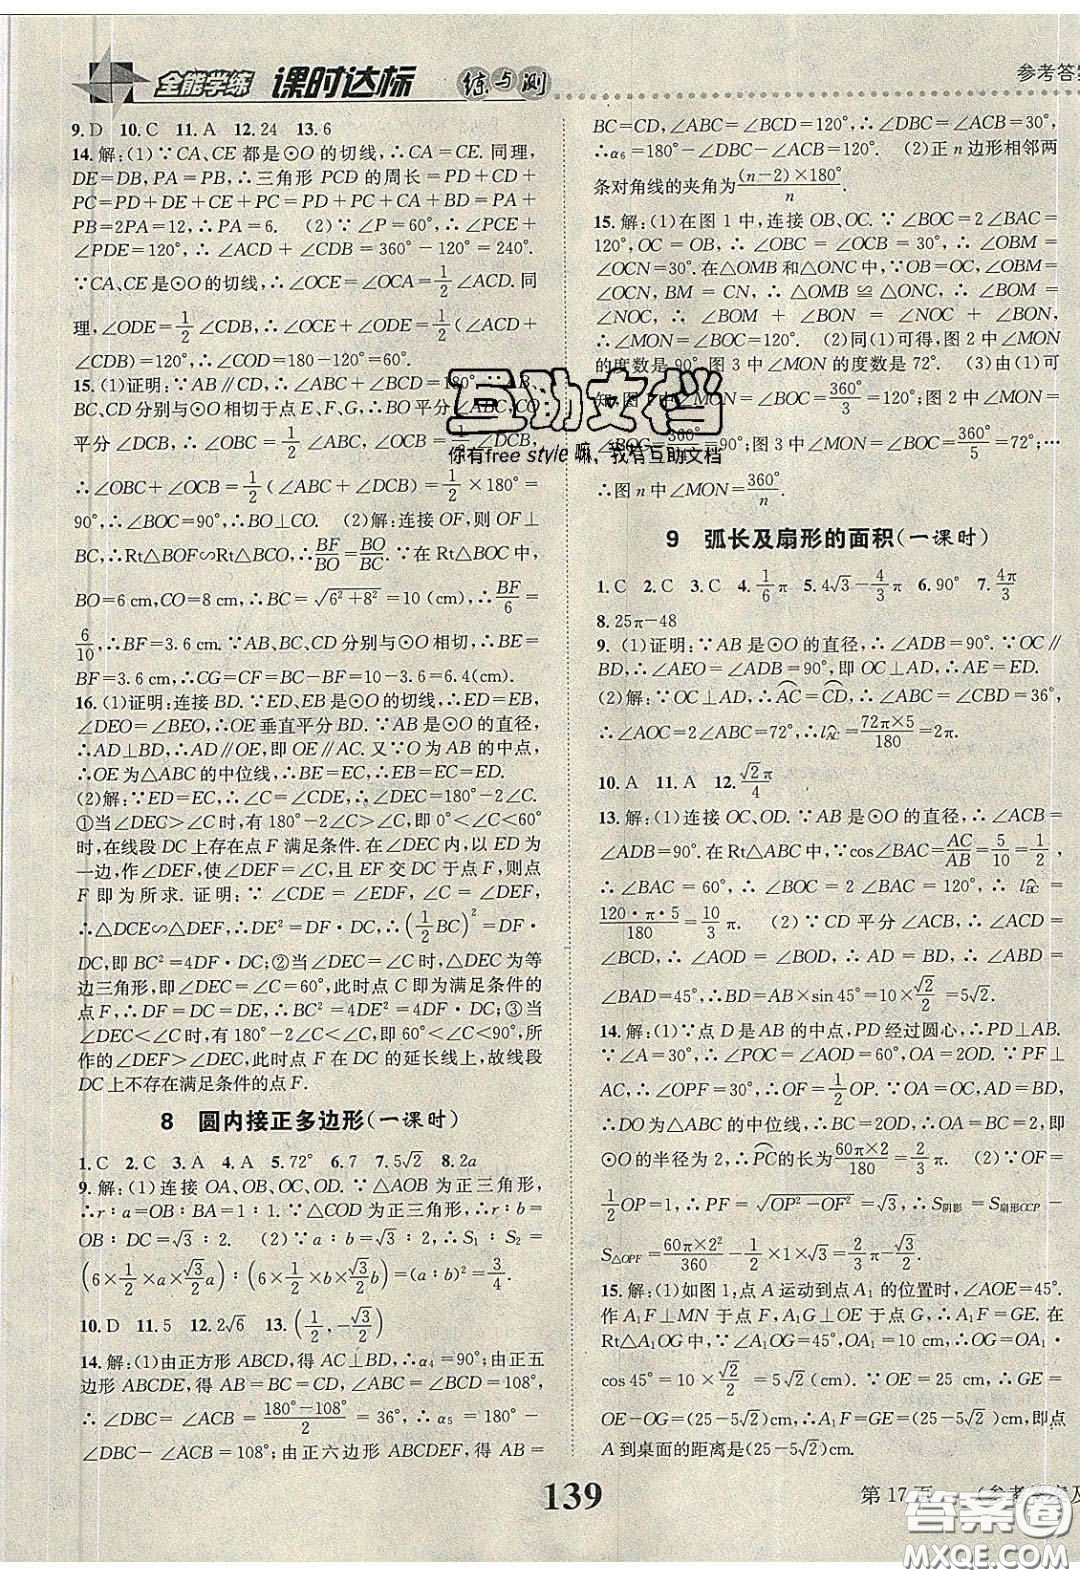 全能学练 课时达标 练与测
参考答案
9.D 10.C 11.A 12.24 13.6
14.解:(1)∵CA、CE都是⊙O的切线,∴CA=CE.同理,
DE=DB,PA=PB,∴三角形PCD的周长=PD+CD+
PC=PD+DE+CE+PC=PD+CA+PC+BD=PA+
PB=2PA=12,∴PA=6. (2)∵∠P=60°,∴∠PCE+
∠PDE=120°,∴∠ACD+∠CDB=360°-120°=240°.
∵CA、CE是⊙O的切线,∴∠OCE=∠OCA=1/2∠ACD;同
理,∠ODE=1/2∠CDB,∴∠OCE+∠ODE=1/2(∠ACD+
∠CDB)=120°,∴∠COD=180-120°=60°.
15.(1)证明:∵AB∥CD,∴∠ABC+∠BCD=180°,∵AB、
BC、CD分别与⊙O相切于点E、F、G,∴BO平分∠ABC,CO
平分∠DCB,∴∠OBC=1/2∠ABC,∠OCB=1/2∠DCB,
∴∠OBC+∠OCB=1/2(∠ABC+∠DCB)=1/2×180°=
90°,∴∠BOC=90°,∴BO⊥CO. (2)解:连接OF,则OF⊥
BC,∴Rt△BOF∽Rt△BCO,∴BF/BO=BO/BC.∵在Rt△BOC中,
BO=6 cm,CO=8 cm,∴BC=√(6²+8²)=10(cm),∴BF/6=
6/10,∴BF=3.6 cm.∵AB、BC、CD分别与⊙O相切,∴BE=
BF=3.6 cm,∴CG=CF=BC-BF=10-3.6=6.4(cm).
16.(1)证明:连接BD.∵ED、EB是⊙O的切线,∴ED=EB,
∠DEO=∠BEO,∴OE垂直平分BD.∵AB是⊙O的直径,
∴AD⊥BD,∴AD∥OE,即OE∥AC.又∵O为AB的中点,
∴OE为△ABC的中位线,∴BE=EC,∴EC=ED.
(2)解:∵ED=EC,∴∠C=∠CDE,∴∠DEC=180°-2∠C.
①当∠DEC>∠C时,有180°-2∠C>∠C,即0°<∠C<60°
时,在线段DC上存在点F满足条件.在∠DEC内,以ED为
一边,作∠DEF,使∠DEF=∠C,且EF交DC于点F,则点
F即为所求.证明:∵∠CDE=∠EDF,∠C=∠DEF,
∴△DCE∽△DEF,∴DE²=DF·DC,∴(1/2BC)²=DF·
DC,即BC²=4DF·DC;②当∠DEC=∠C时,△DEC为等
边三角形,即∠DEC=∠C=60°,此时点C即为满足条件的
点F,∴DF=DC=DE,仍有BC²=4DF·DC;③当
∠DEC<∠C时,有180°-2∠C<∠C,即60°<∠C<90°,所
作的∠DEF>∠DEC,此时点F在DC的延长线上,故线段
DC上不存在满足条件的点F.
8 圆内接正多边形(一课时)
1.C 2.C 3.A 4.A 5.72° 6.7 7.5√2 8.2a
9.解:(1)连接OA、OB、OC、OD.∵△AOB为正三角形,
∴r∶a=OB∶BA=1∶1.∵△COD为正三角形,∴r∶b=
OB∶DC=√3∶2. (2)∵a∶b=√3∶2,∴S₁∶S₂=
(6×1/2×a×√3/2a)∶(6×1/2×b×√3/2b)=(a∶b)²=3/4.
10.D 11.5 12.2√6 13.(1/2,-√3/2)
14.解:(1)由正方形ABCD,得AC⊥BD,∴α₄=90°;由正五
边形ABCDE,得AB=BC=CD,∠ABC=∠BCD=108°,
∴∠CAB=∠ACB=∠DBC=(180°-108°)/2=36°,∴α₅=180°-
∠DBC-∠ACB=108°;由正六边形ABCDEF,得AB=
BC=CD,∠ABC=∠BCD=120°,∴∠DBC=∠ACB=30°,
∴α₆=180°-∠DBC-∠ACB=120°. (2)正n边形相邻两
条对角线的夹角为(n-2)×180°/n.
15.解:(1)在图1中,连接OB、OC.∵∠BOC=2∠BAC=
120°,OC=OB,∴∠OBC=∠OCB=30°,∴∠OBM=
∠OCN=30°.在△OMB和△ONC中,∵OB=OC,∠OBM=
∠OCN,BM=CN,∴△OMB≌△ONC,∴∠BOM=
∠NOC,∴∠BOM+∠BON=∠NOC+∠BON,
∴∠MON=∠BOC=120°. (2)同(1)可得,图2中∠MON
的度数是90°,图3中∠MON的度数是72°. (3)由(1)可
知,图1中∠MON=∠BOC=360°/3=120°;图2中∠MON=
∠BOC=360°/4=90°;图3中∠MON=∠BOC=360°/5=72°;…
∴图n中∠MON=360°/n.
互助文档
你有free style嘛,我有互助文档
9 弧长及扇形的面积(一课时)
1.C 2.C 3.C 4.1/6π 5.4√3-4/3π 6.90° 7.4π/3
8.25π-48
9.(1)证明:∵AB是⊙O的直径,∴∠ADB=90°.∵OC∥
BD,∴∠AEO=∠ADB=90°,即OC⊥AD,∴AE=ED.
(2)解:∵OC⊥AD,∴AC=CD,∴∠ABC=∠CBD=36°,
∴∠AOC=2∠ABC=72°,∴l AC=72π×5/180=2π.
10.A 11.A 12.√2π/4
13.解:(1)连接OC、OD.∵AB为⊙O的直径,∴∠ACB=
∠ADB=90°.在Rt△ABC中,∵cos∠BAC=AC/AB=5/10=1/2,
∴∠BAC=60°,∴∠BOC=2∠BAC=120°,∴l BC=
120·π·5/180=10/3π. (2)∵CD平分∠ACB,∴∠ACD=
∠BCD,∴∠AOD=∠BOD,∴AD=BD,∴∠ABD=
∠BAD=45°,∴BD=AB×sin45°=10×√2/2=5√2.
14.解:(1)∵点D是AB的中点,PD经过圆心,∴PD⊥AB.
∵∠A=30°,∴∠POC=∠AOD=60°,OA=2OD.∵PF⊥
AC,∴∠OPF=30°,∴OF=1/2OP.∵OA=OC,AD=BD,
∴DO为△ABC的中位线,∴BC=2OD,∴OA=BC=2,即
⊙O的半径为2,∴PC的长为60π×2/180=2/3π. (2)∵OF=
1/2OP=1,∴PF=√(OP²-OF²)=√3,∴S阴影=S扇形OCP-
S△OPF=60π×2²/360-1/2×1×√3=2/3π-√3/2.
15.解:(1)如图1,点A运动到点A₁的位置时,∠AOE=45°.
作A₁F⊥MN于点F,A₁G⊥OE于点G,∴A₁F=GE.在
Rt△A₁OG中,∵∠A₁OG=45°,OA₁=10 cm,∴OG=OA₁·
cos45°=10×√2/2=5√2(cm).∵OE=25 cm,∴GE=
OE-OG=(25-5√2)cm,∴A₁F=GE=(25-5√2)cm,即点
A到桌面的距离是(25-5√2)cm.
139
第17页
答案圈
MXQE.COM